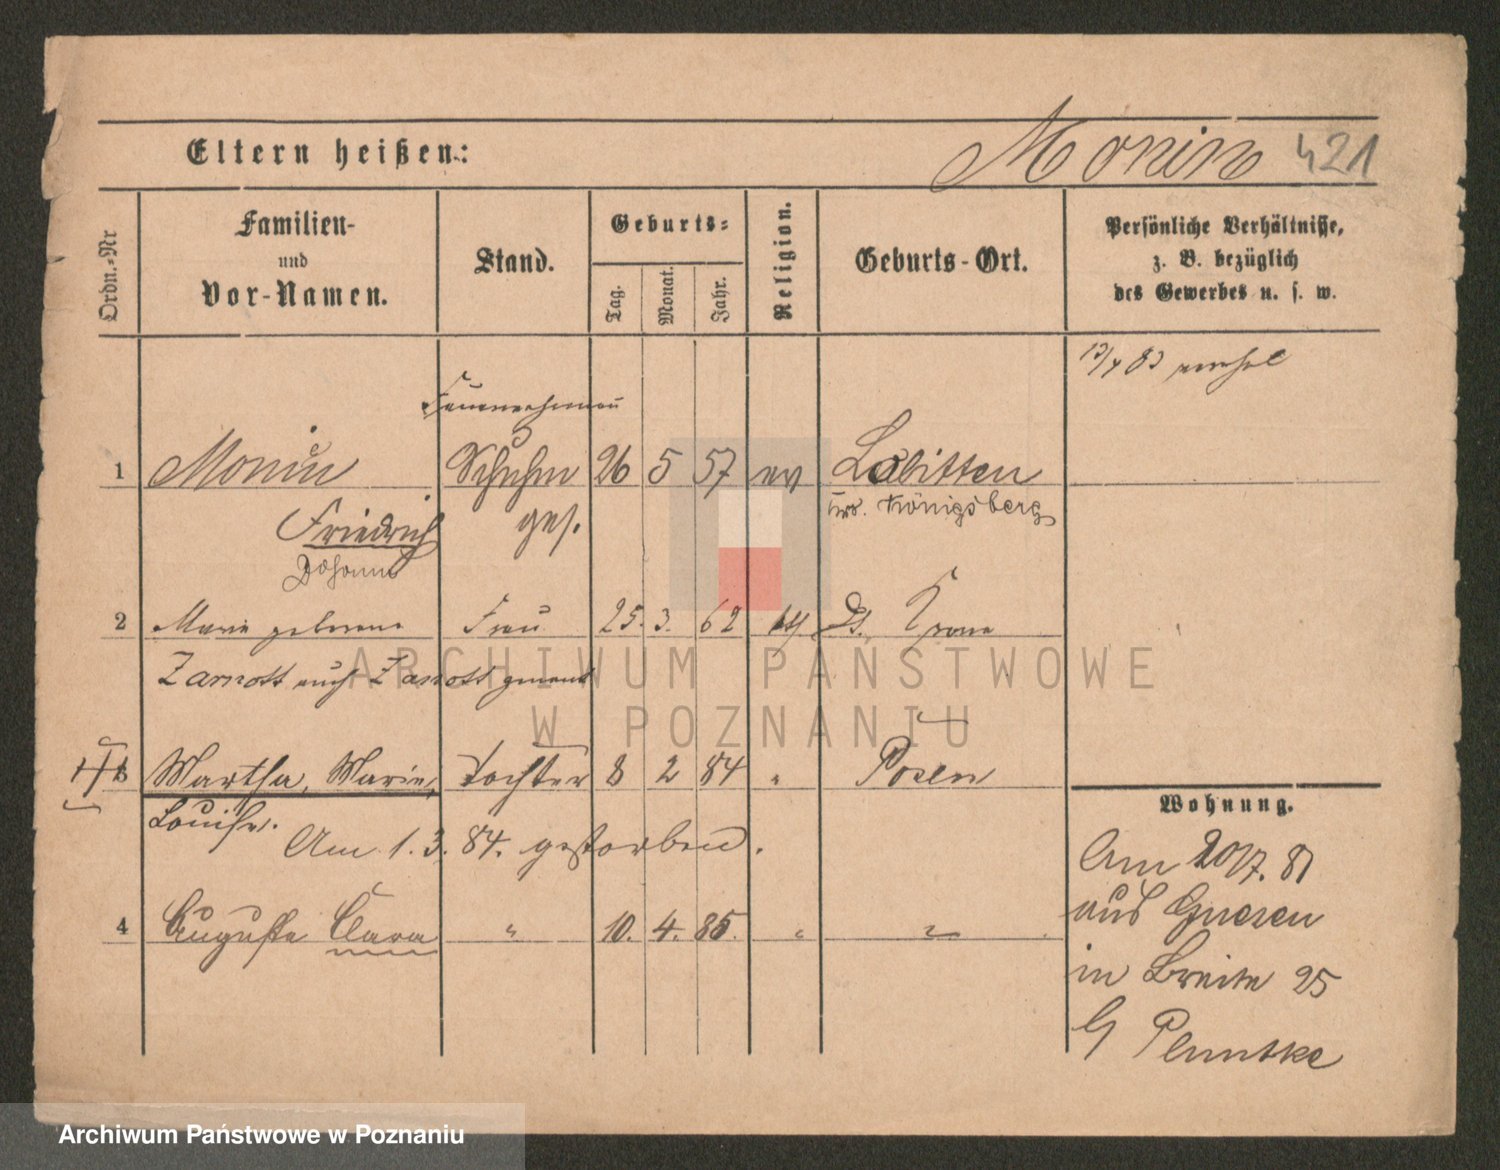 Eltern heißen:
Monin 421
Ordn.-Nr
Familien-
und
Vor-Namen.
Stand.
Geburts-
Tag.
Monat.
Jahr.
Religion.
Geburts-Ort.
Persönliche Verhältnisse,
z. B. bezüglich
des Gewerbes u. s. w.
Feuerwehrmann
1 Monin Schuhm 26 5 57 ev Labitten
ges. Krs. Königsberg
Friedrich
Johann
2 Marie geborene Frau 25. 3. 62 kth Dt. Krone
Zarnott auch Zarnott genannt
3 Martha, Marie, Tochter 8 2 84 " Posen
Louise.
Am 1. 3. 84. gestorben.
4 Auguste Clara " 10. 4. 85 " "
Wohnung.
Am 20/7. 81
aus Gnesen
in Breite 25
ARCHIWUM PAŃSTWOWE
W POZNANIU
Archiwum Państwowe w Poznaniu